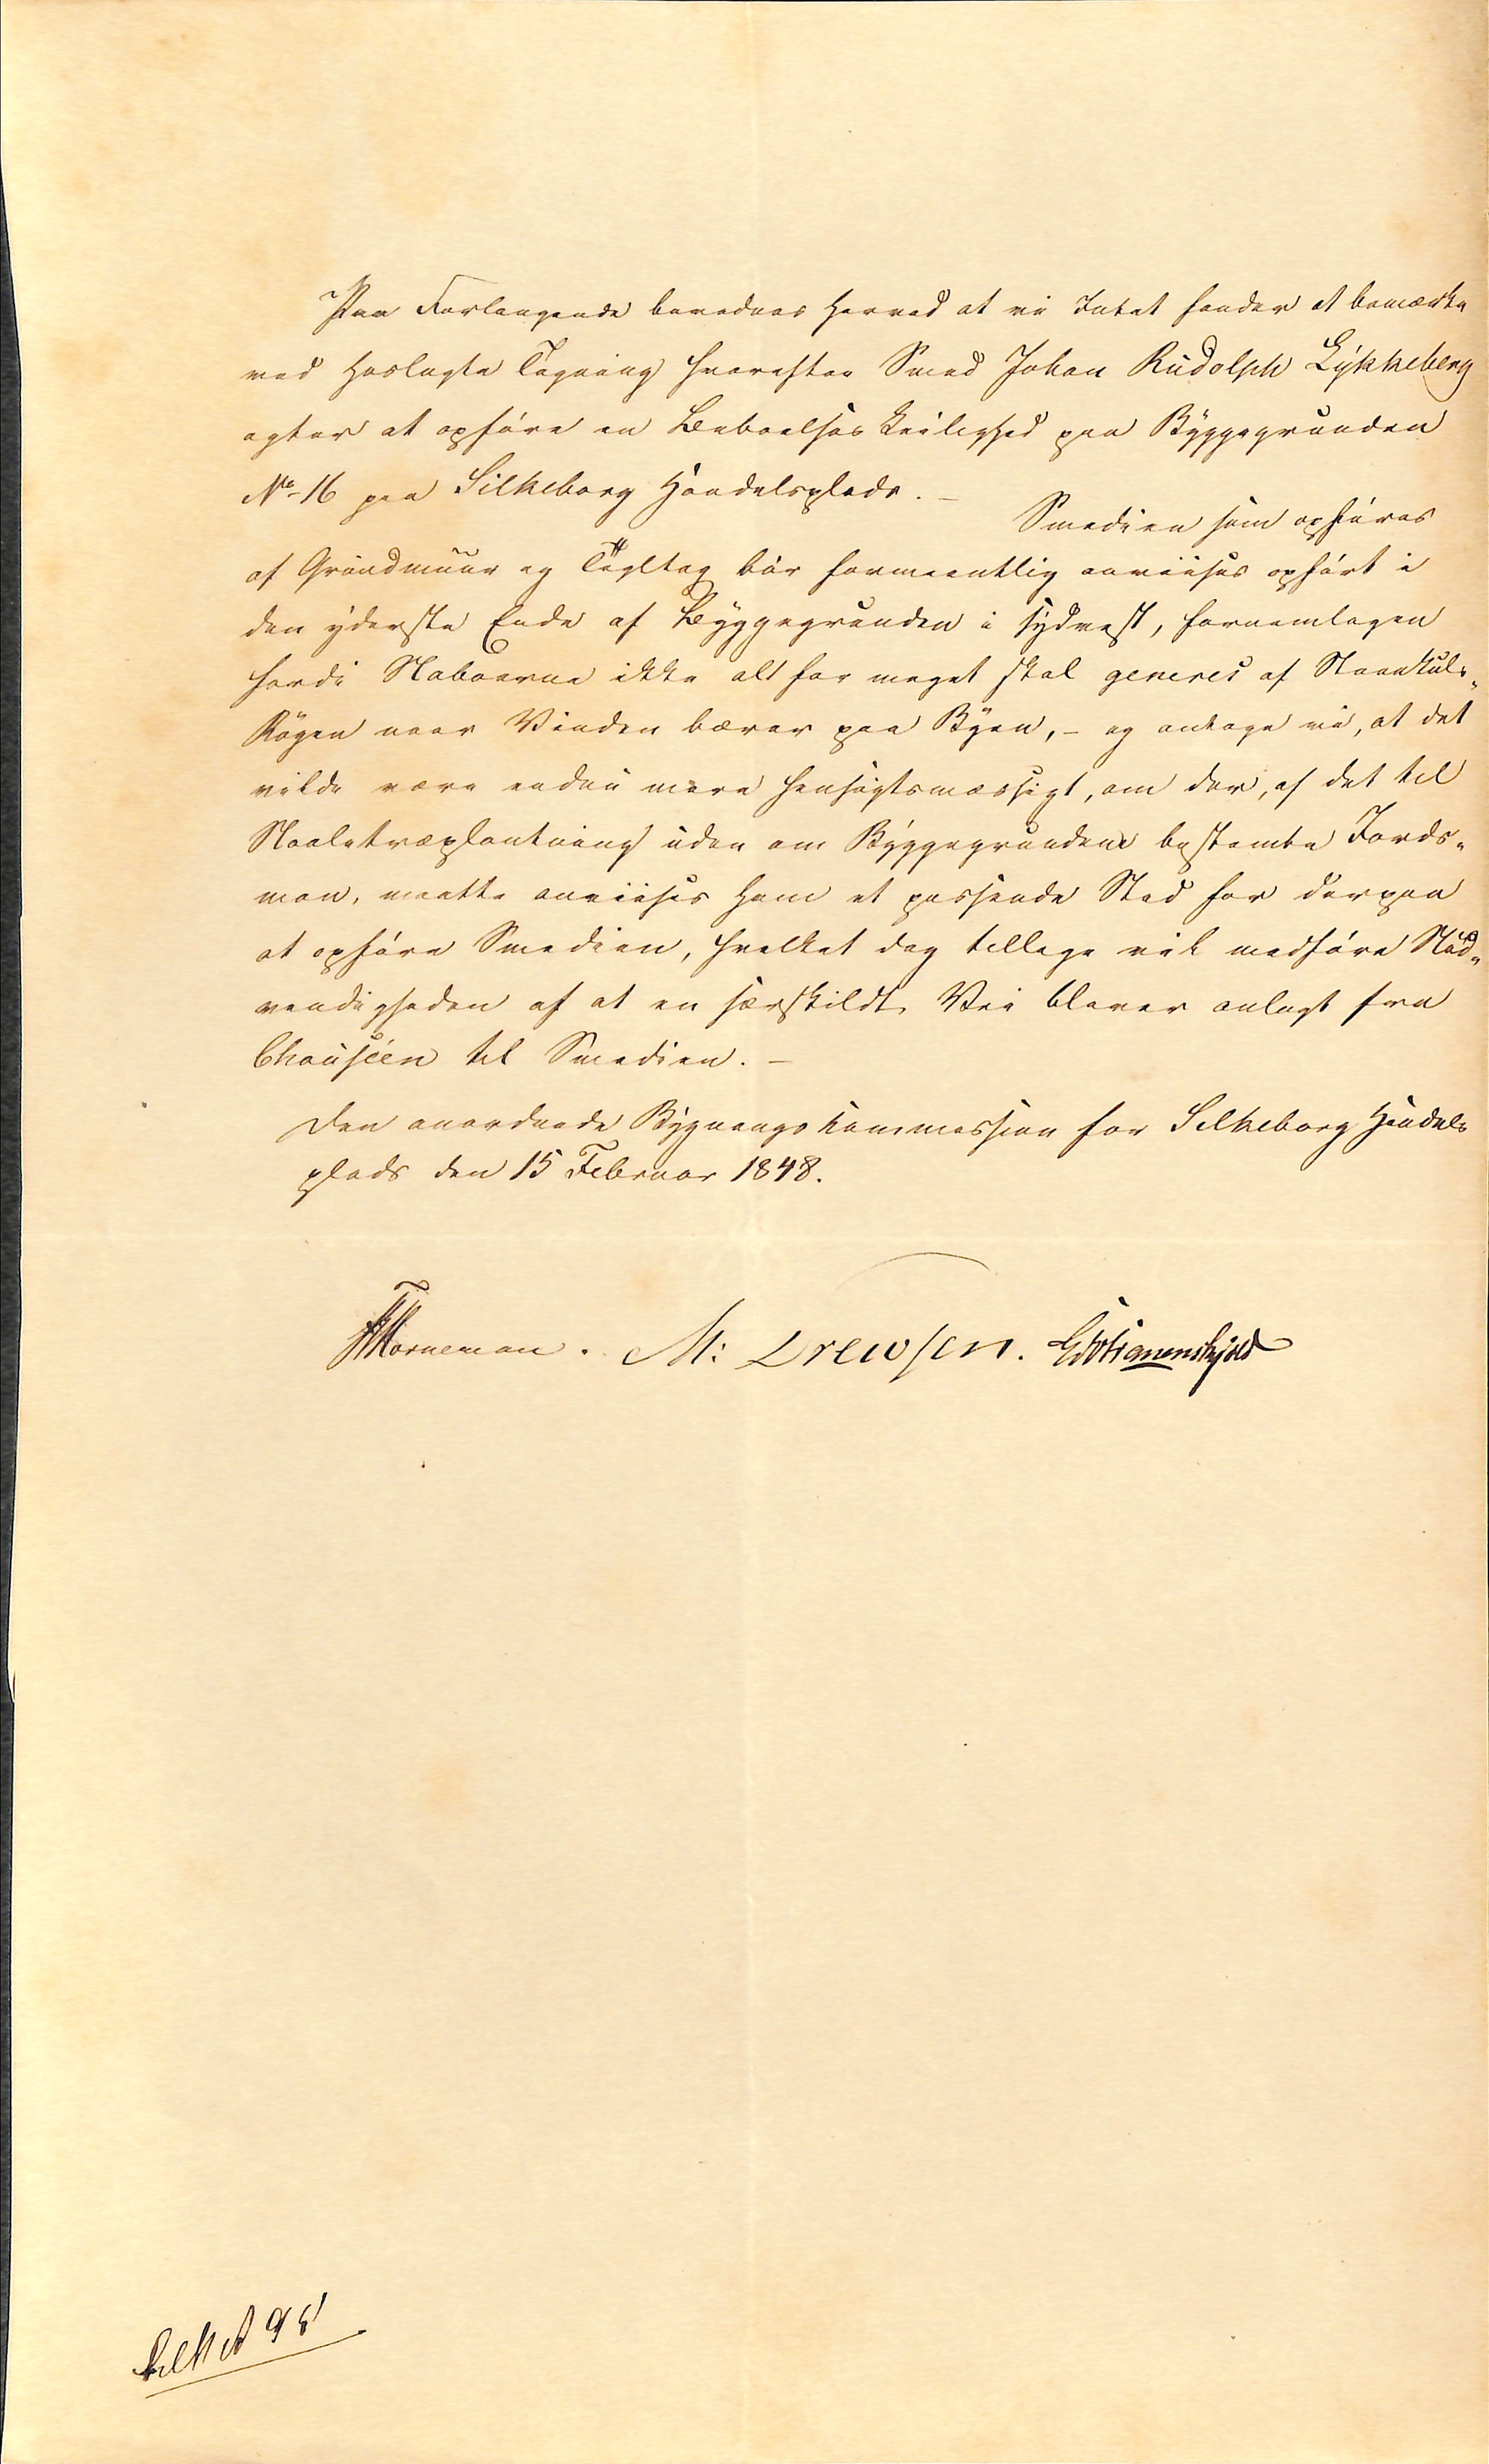 Paa Forlangende bevidnes herved at vi Intet finder at bemærke
ved hoslagte Tegning hvorefter Smed Johan Rudolph Lykkeberg
agter at opføre en Beboelses Leilighed paa Byggegrunden
No 16 paa Silkeborg Handelsplads. –
Smedien som opføres
af Grundmuur og Tegltag bør formeentlig anviises opført i
den yderste Ende af Byggegrunden i Sydvest, fornemlegen
fordi Naboerne ikke alt for meget skal generes af Steenkuls-
Røgen naar Vinden bærer paa Byen, – og antage vi, at det
vilde være endnu mere hensigtsmæssigt, om der, af det til
Naaletræplantning uden om Byggegrundene bestemte Jords-
mon, maatte anviises ham et passende Sted for derpaa
at opføre Smedien, hvilket dog tillige vil medføre Nød-
vendigheden af at en særskildt Vei bliver anlagt fra
Chauséen til Smedien. –
Den anordnede Bygnings Commission for Silkeborg Handels
plads den 15 Februar 1848.
Horneman. M: Drewsen.